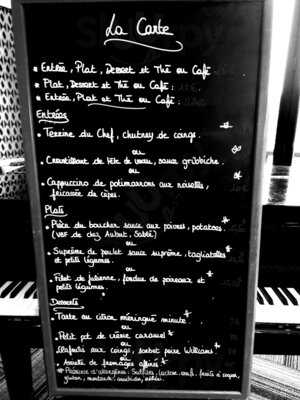 La Carte
* Entrée, Plat, Dessert et Thé ou Café
* Plat, Dessert et Thé ou Café :
* Entrée, Plat et Thé ou Café :
Entrées
• Terrine du Chef, chutney de coings.
ou
• Croustillant de tête de veau, sauce gribiche.
ou
• Cappuccino de potimarrons aux noisettes,
fricassée de cèpes.
Plats
• Pièce du boucher sauce aux poivres, potatoes
(VBF de chez Aubret, Sablé)
ou
• Suprême de poulet sauce suprême, tagliatelles
et petits légumes.
ou
• Filet de julienne, fondue de poireaux et
petits légumes.
Desserts
• Tarte au citron meringuée minute
ou
• Petit pot de crème caramel
ou
• Clafoutis aux coings, sorbet poire Williams
ou
• Assiette de fromages affinés
* Présence d'allergène : Sulfites, lactose, oeufs, fruits à coque,
gluten, moutarde,